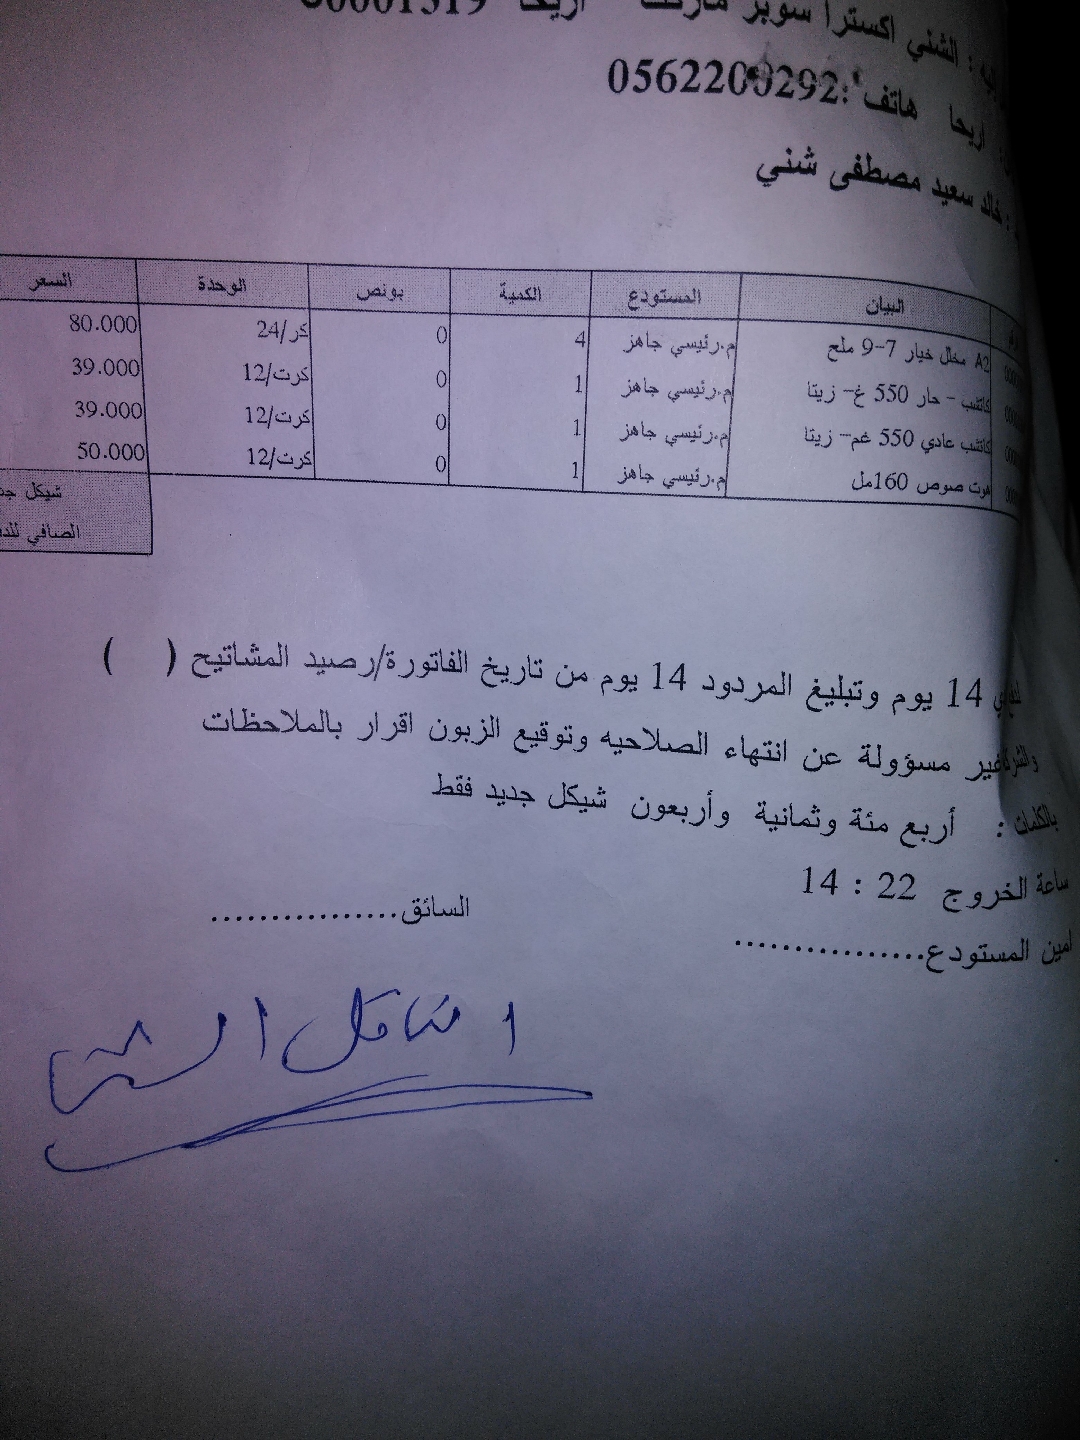 : الشني اكسترا سوبر ماركت - اريحا C0001319
اريحا هاتف :0562200292
: خالد سعيد مصطفى شني
البيان المستودع الكمية بونص الوحدة السعر
A2 مخلل خيار 7-9 ملح م.رئيسي جاهز 4 0 كر/24 80.000
كاتشب - حار 550 غ- زيتا م.رئيسي جاهز 1 0 كرت/12 39.000
كاتشب عادي 550 غم- زيتا م.رئيسي جاهز 1 0 كرت/12 39.000
هوت صوص 160مل م.رئيسي جاهز 1 0 كرت/12 50.000
شيكل
الصافي
14 يوم وتبليغ المردود 14 يوم من تاريخ الفاتورة/رصيد المشاتيح ( )
والشركة غير مسؤولة عن انتهاء الصلاحيه وتوقيع الزبون اقرار بالملاحظات
بالكلمات : أربع مئة وثمانية وأربعون شيكل جديد فقط
ساعة الخروج 22 : 14
امين المستودع................ السائق................